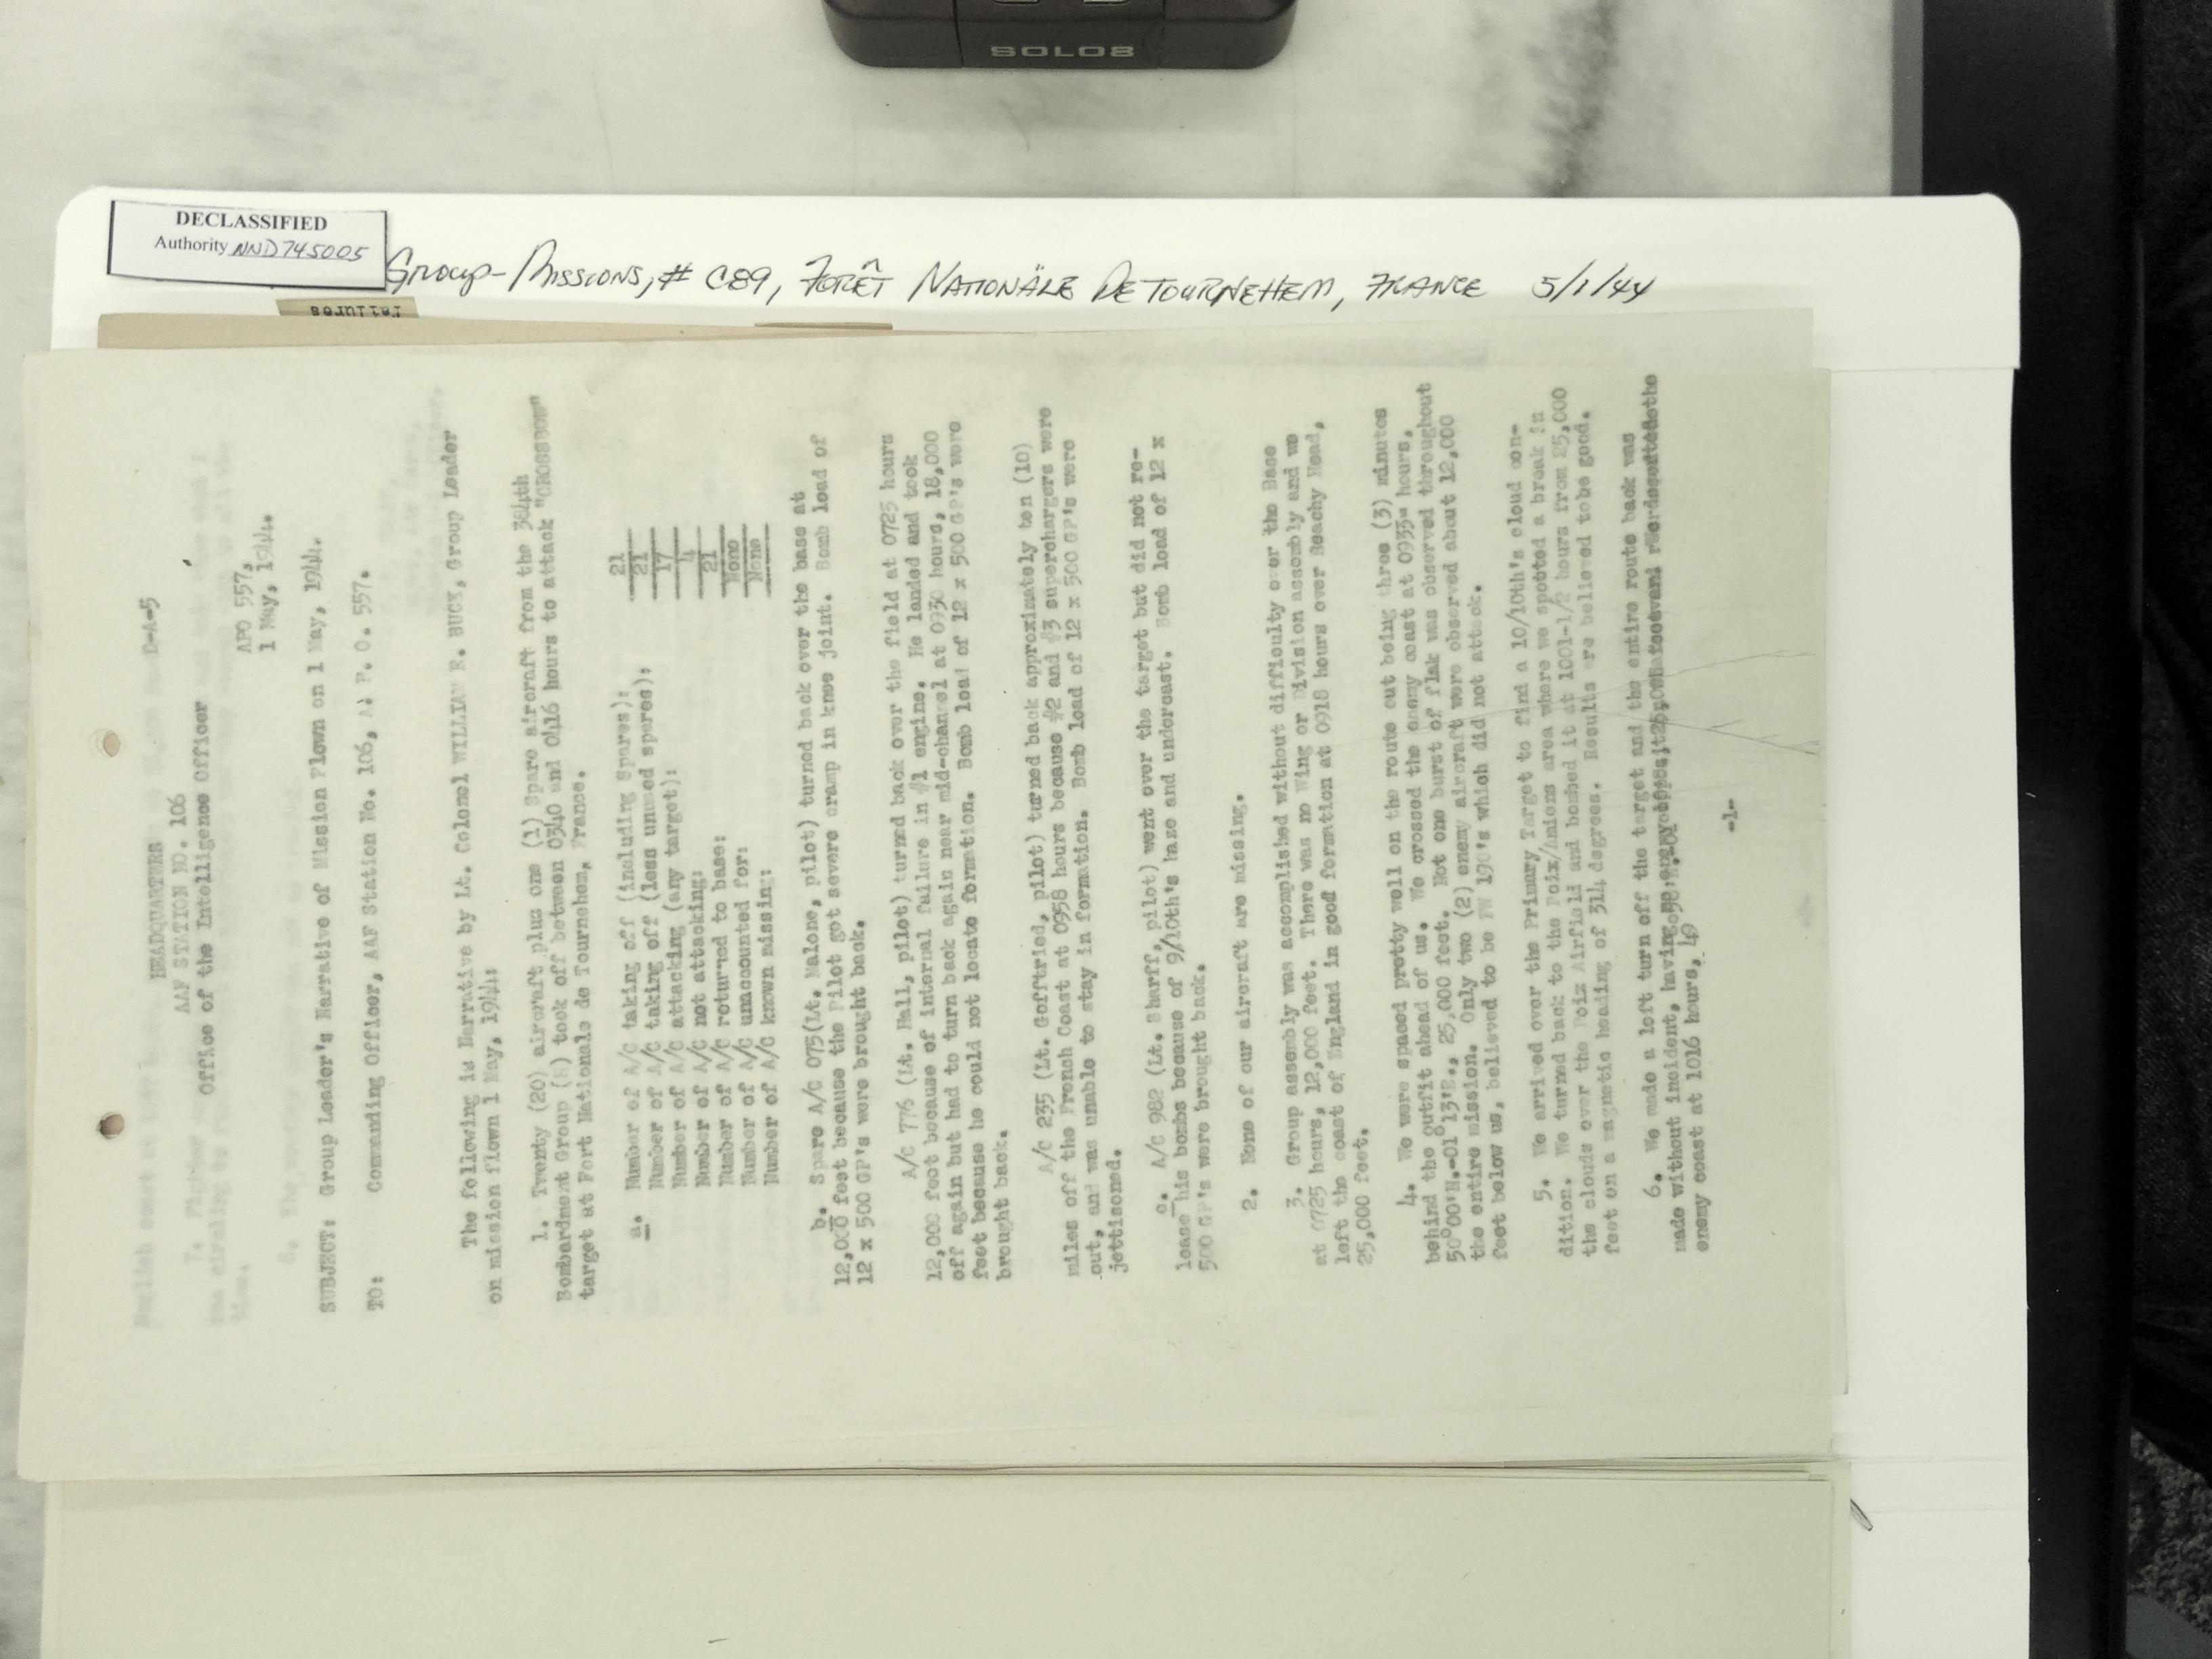 SOLO8
DECLASSIFIED
Authority NND745005
Group-Missions, # C89, Forêt Nationäle De Tournehem, France 5/1/44
failures
HEADQUARTERS D-A-5
AAF STATION NO. 106
Office of the Intelligence Officer
APO 557,
1 May, 1944.
SUBJECT: Group Leader's Narrative of Mission Flown on 1 May, 1944.
TO: Commanding Officer, AAF Station No. 106, A: P. O. 557.
The following is Narrative by Lt. Colonel WILLIAM E. BUCK, Group Leader
on mission flown 1 May, 1944:
1. Twenty (20) aircraft plus one (1) Spare aircraft from the 384th
Bombardment Group (H) took off between 0540 and 0416 hours to attack "CROSSBOW"
target at Fort Nationals de Tournehem, France.
a. Number of A/C taking off (including Spares): 21
Number of A/C taking off (less unused spares): 21
Number of A/C attacking (any target): 17
Number of A/C not attacking: 4
Number of A/C returned to base: 21
Number of A/C unaccounted for: None
Number of A/C known missing: None
b. Spare A/C 075(Lt. Malone, pilot) turned back over the base at
12,000 feet because the Pilot got severe cramp in knee joint. Bomb load of
12 x 500 GP's were brought back.
A/C 776 (Lt. Hall, pilot) turned back over the field at 0725 hours
12,000 foot because of internal failure in #1 engine. He landed and took
off again but had to turn back again near mid-channel at 0930 hours, 18,000
feet because he could not locate formation. Bomb load of 12 x 500 GP's were
brought back.
A/C 235 (Lt. Goffried, pilot) turned back approximately ten (10)
miles off the French Coast at 0958 hours because #2 and #3 superchargers were
out, and was unable to stay in formation. Bomb load of 12 x 500 GP's were
jettisoned.
c. A/C 982 (Lt. Sharff, pilot) went over the target but did not re-
lease his bombs because of 9/10th's haze and undercast. Bomb load of 12 x
500 GP's were brought back.
2. None of our aircraft are missing.
3. Group assembly was accomplished without difficulty over the Base
at 0725 hours, 12,000 feet. There was no Wing or Division assembly and we
left the coast of England in good formation at 0918 hours over Beachy Head,
25,000 feet.
4. We were spaced pretty well on the route out being three (3) minutes
behind the outfit ahead of us. We crossed the enemy coast at 0933- hours,
50°00'N.-01°13'E., 25,000 feet. Not one burst of flak was observed throughout
the entire mission. Only two (2) enemy aircraft were observed about 12,000
feet below us, believed to be FW 190's which did not attack.
5. We arrived over the Primary Target to find a 10/10th's cloud con-
dition. We turned back to the Poix/Amiens area where we spotted a break in
the clouds over the Poix Airfield and bombed it at 1001-1/2 hours from 25,000
feet on a magnetic heading of 314 degrees. Results are believed tobe good.
6. We made a left turn off the target and the entire route back was
made without incident, having
enemy coast at 1016 hours,
-1-